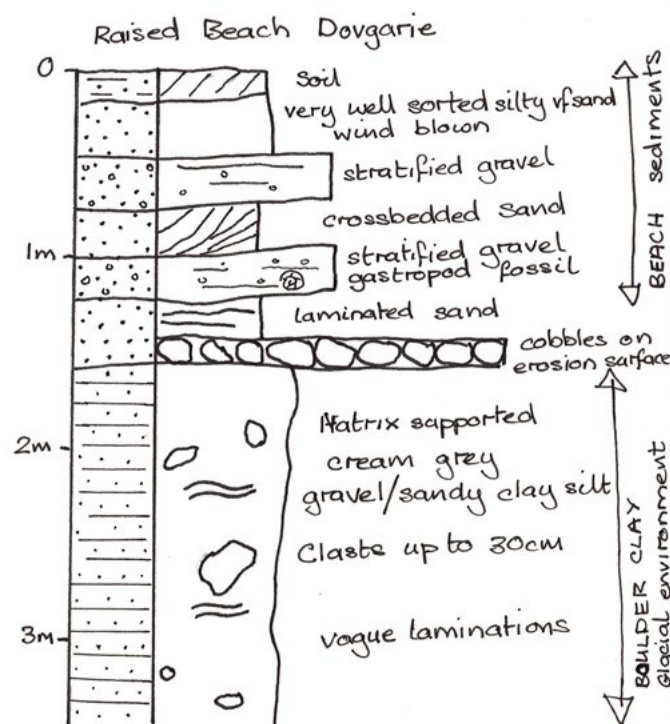 Raised Beach Dovgarie
0
soil
very well sorted silty vf sand
wind blown
stratified gravel
crossbedded sand
1m
stratified gravel
gastropod fossil
laminated sand
cobbles on
erosion surface
BEACH sediments
2m
Matrix supported
cream grey
gravel/sandy clay silt
Clasts up to 30cm
3m
vague laminations
BOULDER CLAY
Glacial environment